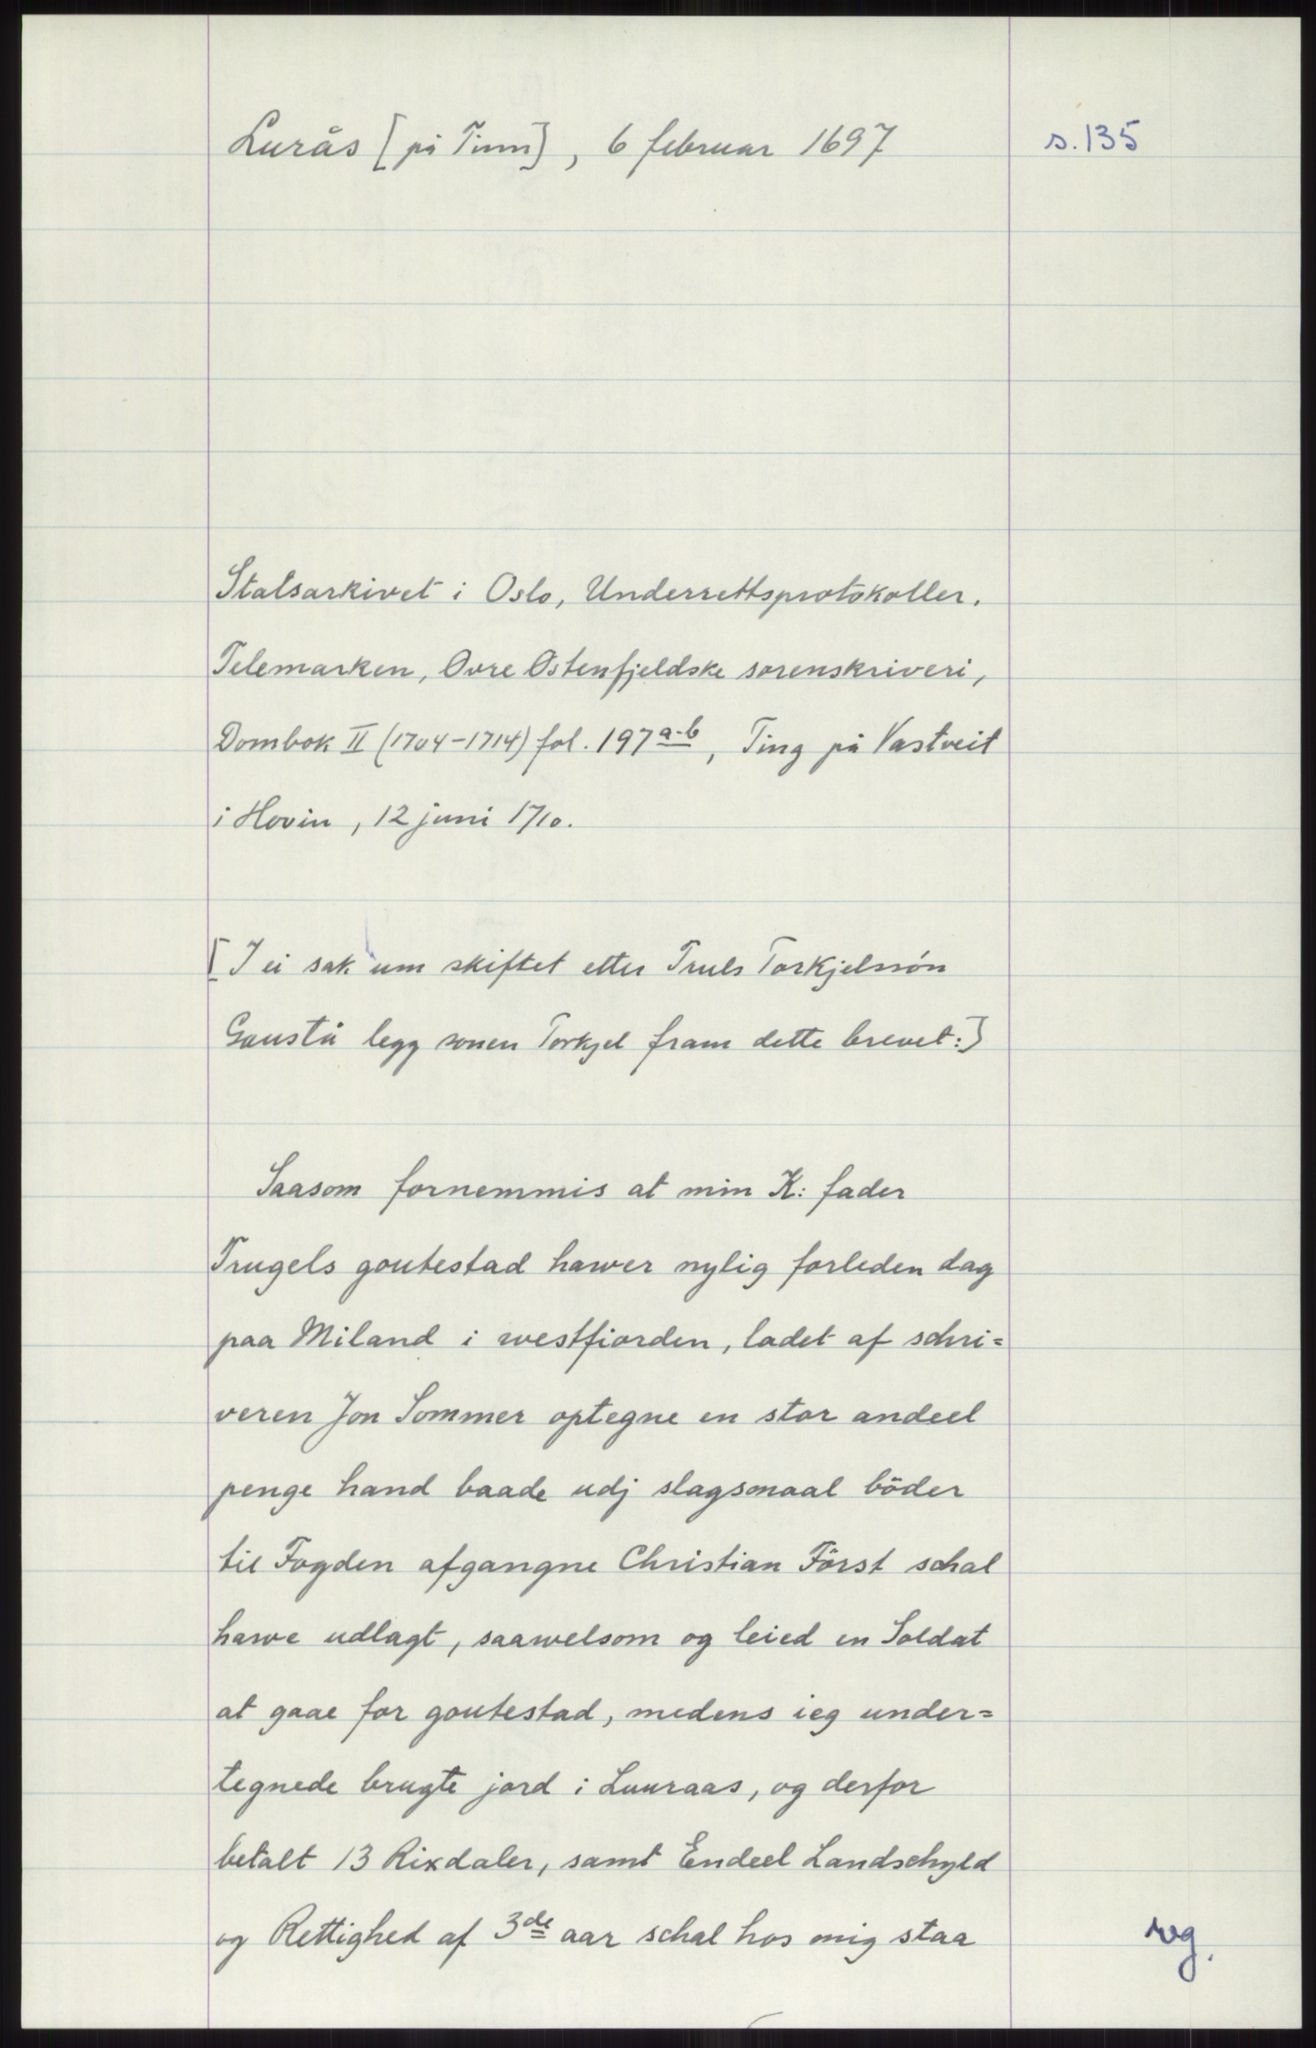 Lurås [på Tinn], 6 februar 1697
s.135
Statsarkivet i Oslo, Underrettsprotokoller.
Telemarken, Øvre Østenfjeldske sorenskriveri,
Dombok II (1704-1714) fol. 197 a-b, Ting på Vastveit
i Hovin, 12 juni 1710.
[I ei sak um skiftet etter Truls Torkjelssøn
Gaustå legg sonen Torkjel fram dette brevet:]
Saasom fornemmis at min K: fader
Trugels goutestad hawer nylig forleden dag
paa Miland i westfiorden, ladet af schri=
veren Jon Sommer optegne en stor andeel
penge hand baade udj slagsmaal böder
til Fogden afgangne Christian Först schal
hawe udlagt, saawelsom og leied en Soldat
at gaae for goutestad, medens ieg under=
tegnede brugte jord i Luuraas, og derfor
betalt 13 Rixdaler, samt Endeel Landschyld
og Rettighed af 3de aar schal hos mig staa
reg.